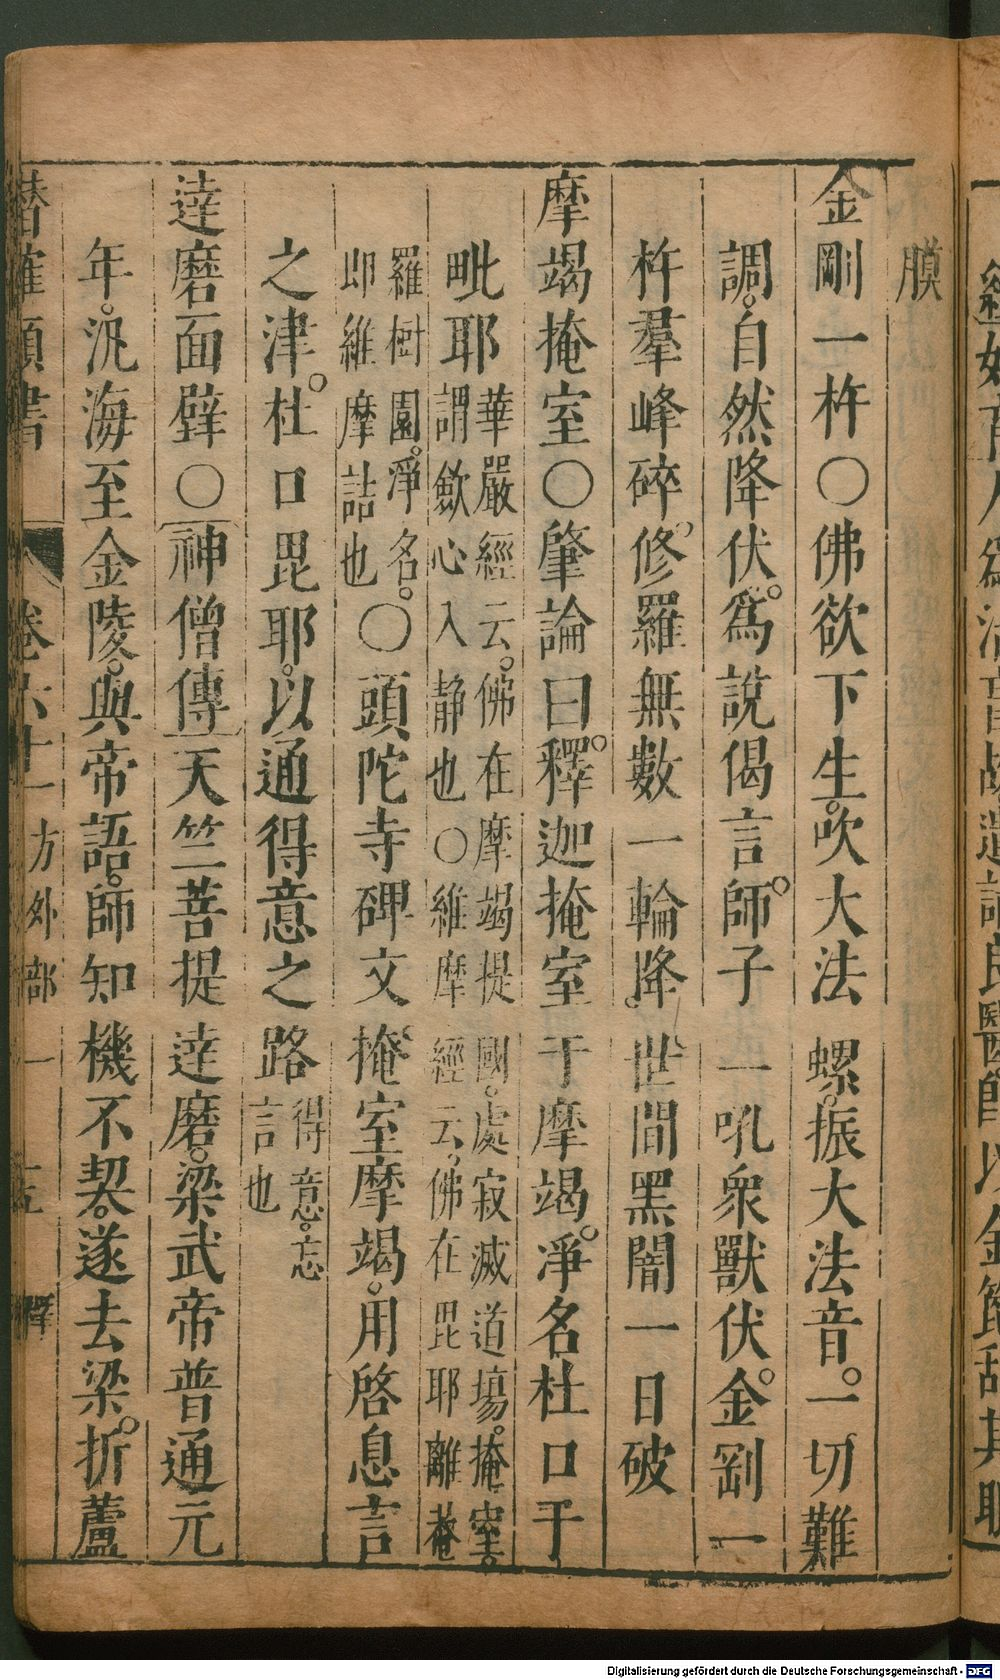 膜
金剛一杵○佛欲下生。吹大法螺。振大法音。一切難
調。自然降伏。爲說偈言師。子一吼衆獸伏。金剛一
杵羣峰碎。修羅無數一輪降。世間黑闇一日破
摩竭掩室○肇論曰。釋迦掩室于摩竭。淨名杜口于
毗耶
華嚴經云。佛在摩竭提國。處寂滅道場。掩室。
謂歛心入静也○維摩經云。佛在毘耶離菴
羅樹園。淨名。
即維摩詰也
○頭陀寺碑文掩室摩竭。用啓息言
之津。杜口毘耶。以通得意之路
得意。忘
言也
達磨面壁○神僧傳天竺菩提達磨。梁武帝普通元
年。汎海至金陵。與帝語。師知機不契。遂去梁。折蘆
潛確類書 卷六十一 方外部一 十五 釋
Digitalisierung gefördert durch die Deutsche Forschungsgemeinschaft - DFG